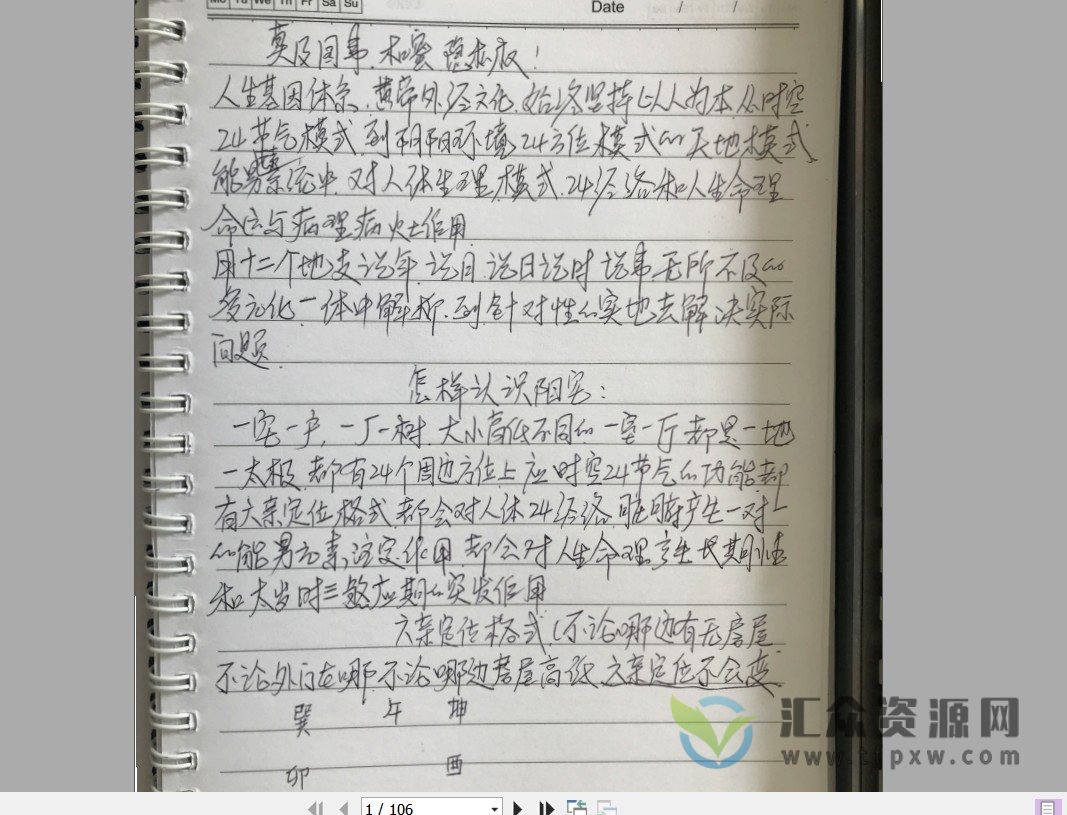 Mo Tu We Th Fr Sa Su
Date / /
莫及国事.和蜜
人生基因体系.黄帝外经文化.始终坚持以人为本.从时空
24节气模式.到阴阳环境.24方位模式的天地模式.
能易系统中.对人体生理.模式.24经络和人生命理
命运与病理病灶作用.
用十二个地支说年.说月.说日说时.说事.无所不及的
多元化.一体中解柳.到针对性的实地去解决实际
问题.
怎样认识阳宅:
一宅一户.一厂一树.大小高低不同的一室一厅都是一地
一太极.都有24个周边方位上应时空24节气的功能.都
有六亲定位格式.都会对人体24经络.脏腑产生一对一
的能易元素注定作用.都会对人生命理.产生长期性
和太岁时三煞应期的突发作用
六亲定位格式.(不论哪边有无房屋
不论外门在哪.不论哪边房屋高低.六亲定位不会变.
巽 午 坤
卯 酉
汇众资源网
1 / 106